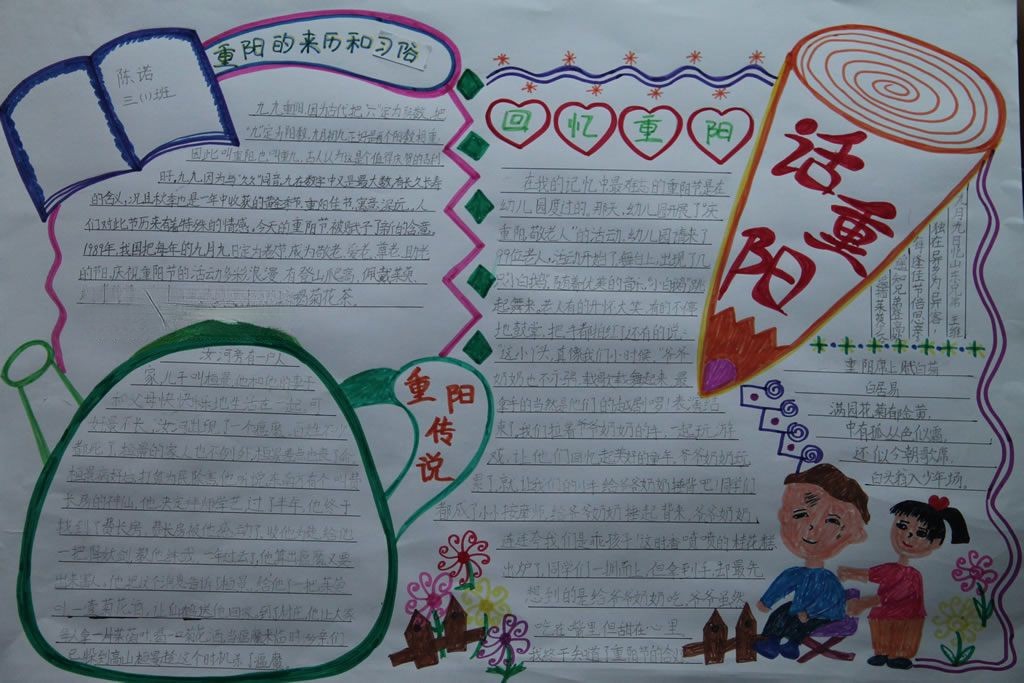 陈诺
三(1)班
重阳的来历和习俗
九九重阳,因为古代把"六"定为阴数,把
"九"定为阳数,九月初九正好是两个阳数相重,
因此叫重阳,也叫重九,古人认为这是个值得庆贺的吉利
时,九九,因为与"久久"同音,九在数字中又是最大数,有长久长寿
的含义,况且秋季也是一年中收获的黄金季节,重阳佳节,寓意深远,人
们对此节历来有着特殊的情感,今天的重阳节,被赋予了新的含意,
1989年,我国把每年的九月九日定为老节,成为敬老、爱老、尊老、助老
的节日,庆祝重阳节的活动多彩浪漫,有登山爬高,佩戴茱萸,
喝菊花茶.
回忆重阳
在我的记忆中最难忘的重阳节是在
幼儿园度过的,那天,幼儿园开展了"庆
重阳,敬老人"的活动,幼儿园请来了
99位老人,活动开始了,舞台上,出现了几
随着优美的音乐,
起舞来,老人有的开怀大笑,有的不停
地鼓掌,把手都拍红了,还有的说:
"这小丫头,真像我们小时候,"爷爷
奶奶也不示弱,载歌载舞起来,最
拿手的当然是他们的越剧啰!表演结
束了,我们拉着爷爷奶奶的手,一起玩游
戏,让他们回忆起美好的童年,爷爷奶奶玩
累了,就让我们的小手给爷爷奶奶捶背吧!同学们
都成了小小按摩师,给爷爷奶奶捶起背来,爷爷奶奶
连连夸我们是乖孩子!这时香喷喷的桂花糕
出炉了,同学们一拥而上,但拿到手,却最先
想到的是给爷爷奶奶吃,爷爷虽然
吃在嘴里,但甜在心里.
我终于知道了重阳节的含义
话重阳
九月九日忆山东兄弟 王维
独在异乡为异客
每逢佳节倍思亲
遥知兄弟登高处
重阳席上赋白菊
白居易
满园花菊郁金黄,
中有孤丛色似霜.
还似今朝歌席,
白头翁入少年场.
重阳传说
汝河旁有一户人
家,儿子叫桓景,他和他的妻子
和父母快快乐乐地生活在一起,可
好景不长,汝河出现了一个瘟魔,
都死了,桓景的家人也不例外,
桓景病好后,打算为民除害,他听说,东南方有个叫费
长房的神仙,他决定拜师学艺,过了半年,他终于
找到了费长房,费长房被他感动了,收他为徒,给他
一把降妖剑,教他练武,一年过去了,他算出瘟魔又要
出来害人,他把这个消息告诉了桓景,给他了一把茱萸
叶一壶菊花酒,让
每人拿一片茱萸叶喝一口菊花酒,当瘟魔来临时,乡亲们
已躲到高山,桓景趁这个时机杀了瘟魔.